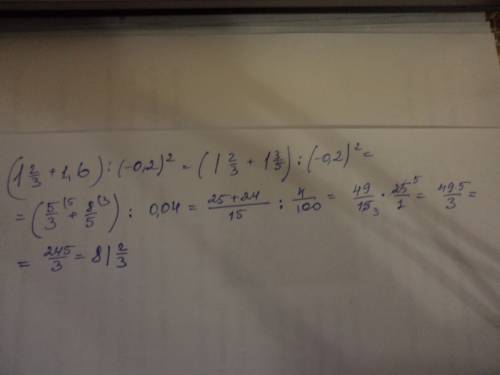 (1 2/3 + 1,6) : (-0,2)² = (1 2/3 + 1 3/5) : (-0,2)² =
= (5/3 ⁽⁵ + 8/5 ⁽³) : 0,04 = (25+24)/15 : 4/100 = 49/15 3 · 25 5/1 = 49·5/3 =
= 245/3 = 81 2/3